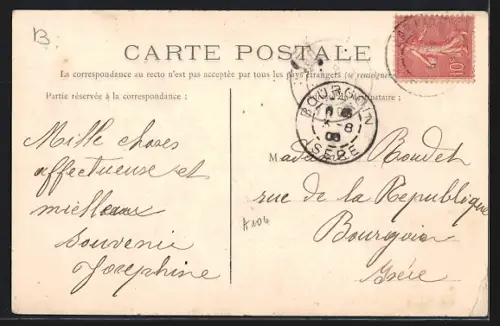 B
CARTE POSTALE
La correspondance au recto n'est pas acceptée par tous les pays étrangers (se renseigner
Partie réservée à la correspondance :
Mille choses
affectueuse et
meilleurs
souvenir
Josephine
10c
BOURGOIN
8
ISÈRE
Madame Boudet
rue de la Republique
Bourgoin
Isère
A104